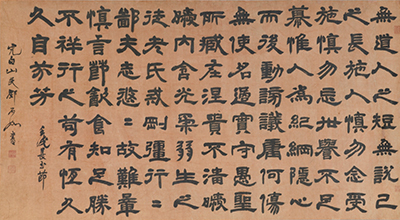 無道人之短無說己
之長施人慎勿念受
施慎勿忘世譽不足
慕惟人為紀綱隱心
而後動謗議庸何傷
無使名過實守愚聖
所臧在涅貴不淄曖
曖內含光柔弱生之
徒老氏戒剛彊行〻
鄙夫志悠〻故難量
慎言節飲食知足勝
不祥行之苟有恆久
久自芬芳
長至節
完白山民鄧石如書